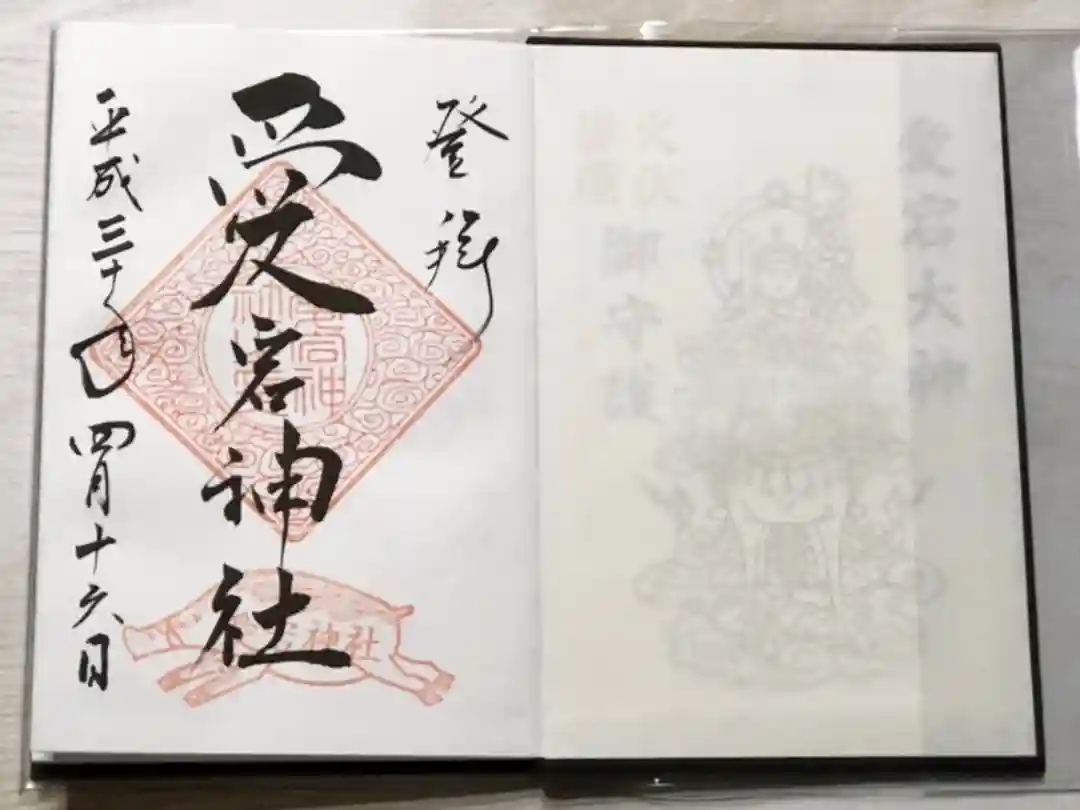 登拝
愛宕神社
平成三十年四月十六日
愛宕神社
愛宕大神
火伏
御守護